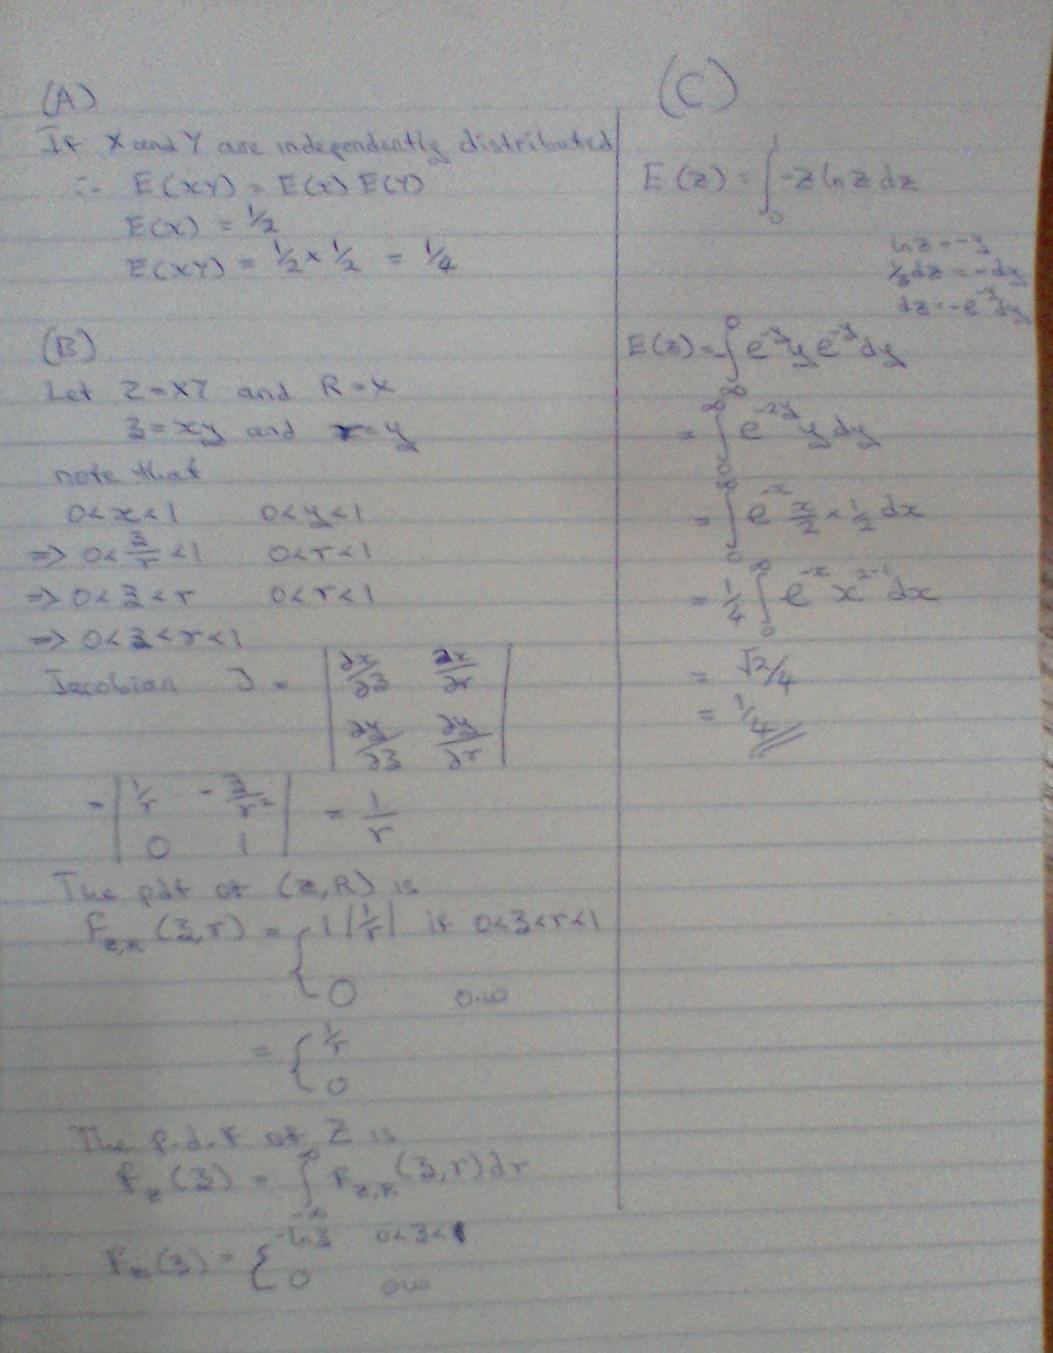 (A)
If X and Y are independently distributed
∴ E(XY) = E(X) E(Y)
E(X) = 1/2
E(XY) = 1/2 × 1/2 = 1/4
(B)
Let Z = XY and R = X
z = xy and r = y
note that
0<x<1 0<y<1
=> 0< z/r <1 0<r<1
=> 0<z<r 0<r<1
=> 0<z<r<1
Jacobian J = | ∂x/∂z ∂x/∂r |
| ∂y/∂z ∂y/∂r |
= | 1/r -z/r² | = 1/r
| 0 1 |
The pdf of (Z,R) is
f_{Z,R} (z,r) = { 1 |1/r| if 0<z<r<1
0 o.w
= { 1/r
0
The p.d.f of Z is
f_z (z) = ∫_{-∞}^{∞} f_{Z,R} (z,r) dr
f_z (z) = { -ln z 0<z<1
0 o.w
(C)
E(z) = ∫_0^1 -z ln z dz
ln z = -y
1/z dz = -dy
dz = -e^{-y} dy
E(z) = ∫_∞^0 e^{-y} y e^{-y} dy
= ∫_0^∞ e^{-2y} y dy
= ∫_0^∞ e^{-x} x/2 × 1/2 dx
= 1/4 ∫_0^∞ e^{-x} x^{2-1} dx
= √2/4
= 1/4